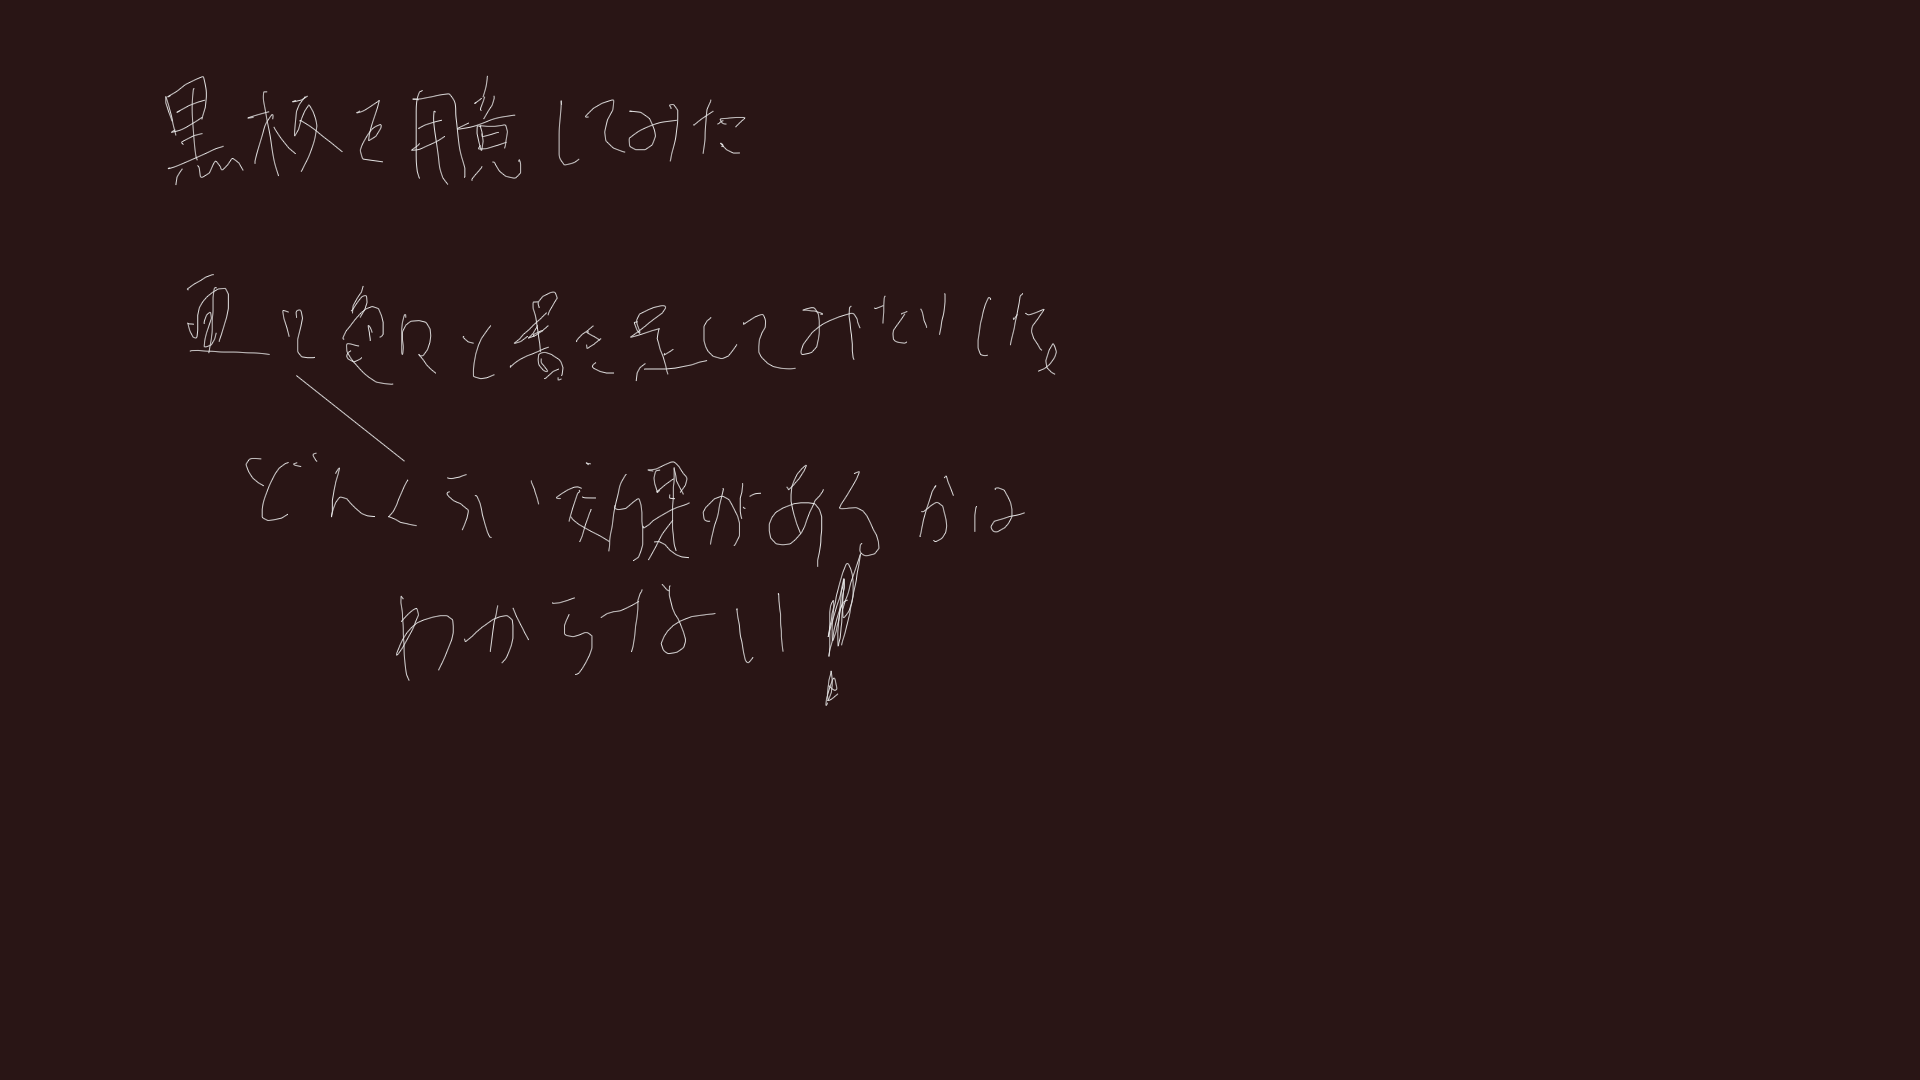 黒板を用意してみた
更に色々と書き足してみたりした。
どんくらい効果があるかは
わからない!